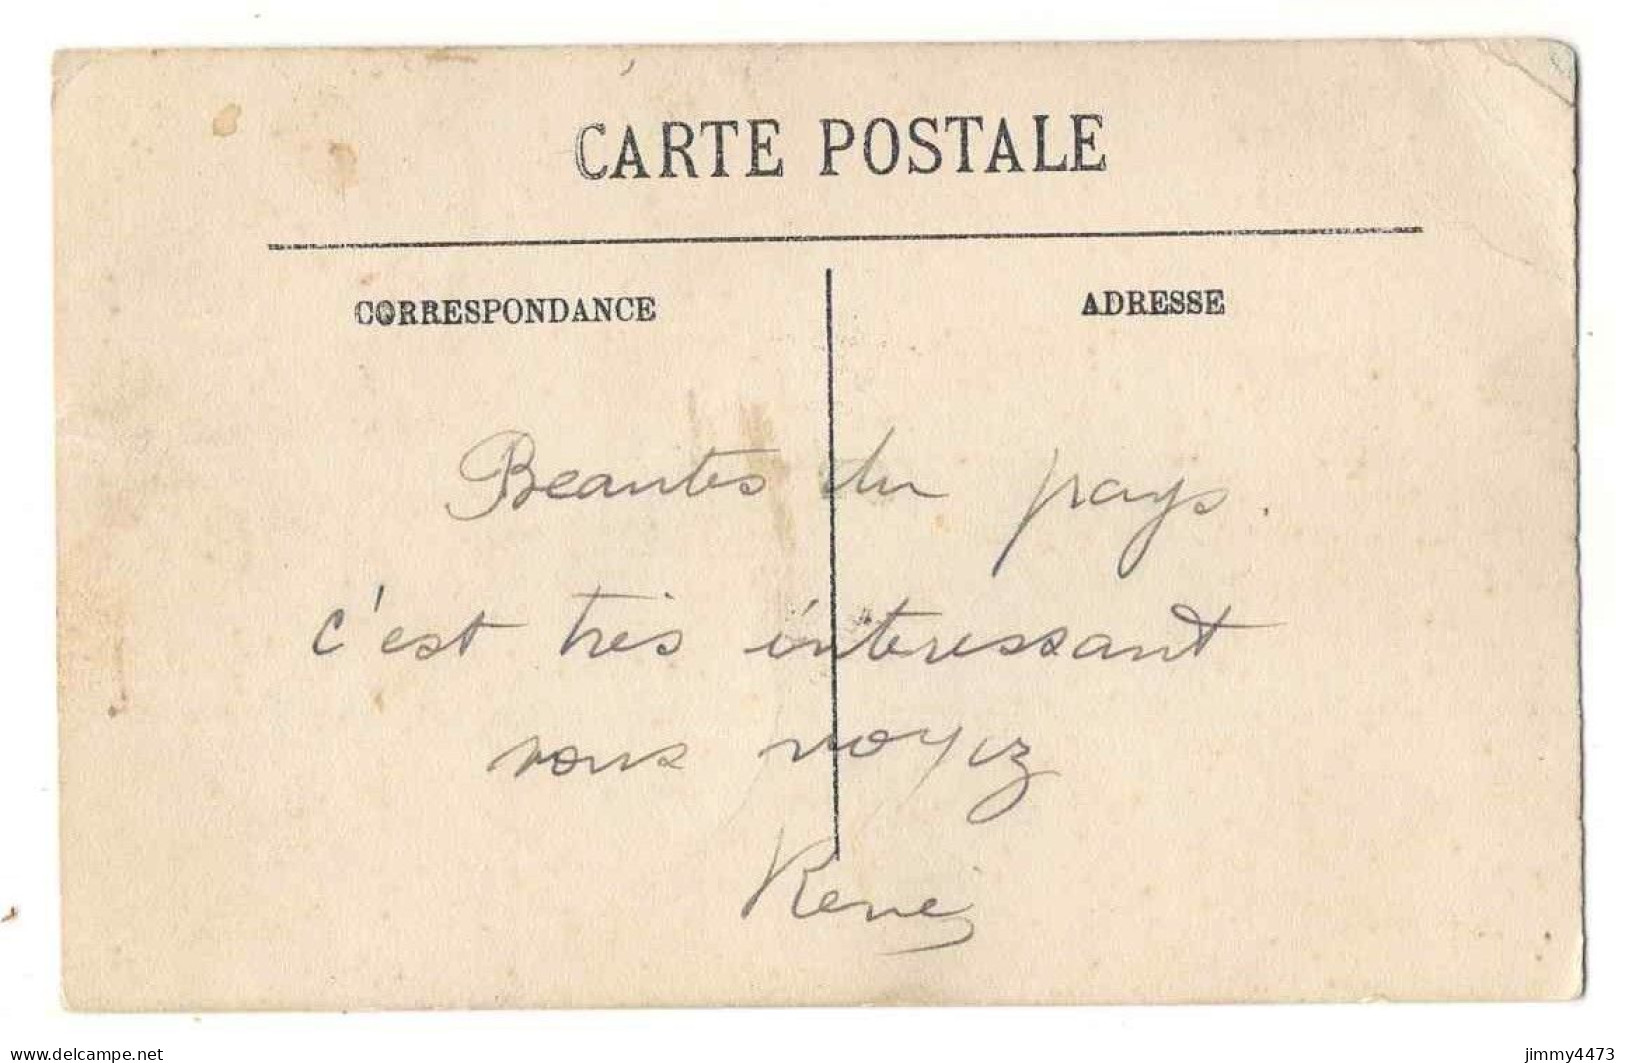 CARTE POSTALE
CORRESPONDANCE
ADRESSE
Beautes du pays.
c'est très interessant
vous voyez
René
www.delcampe.net
jimmy4473